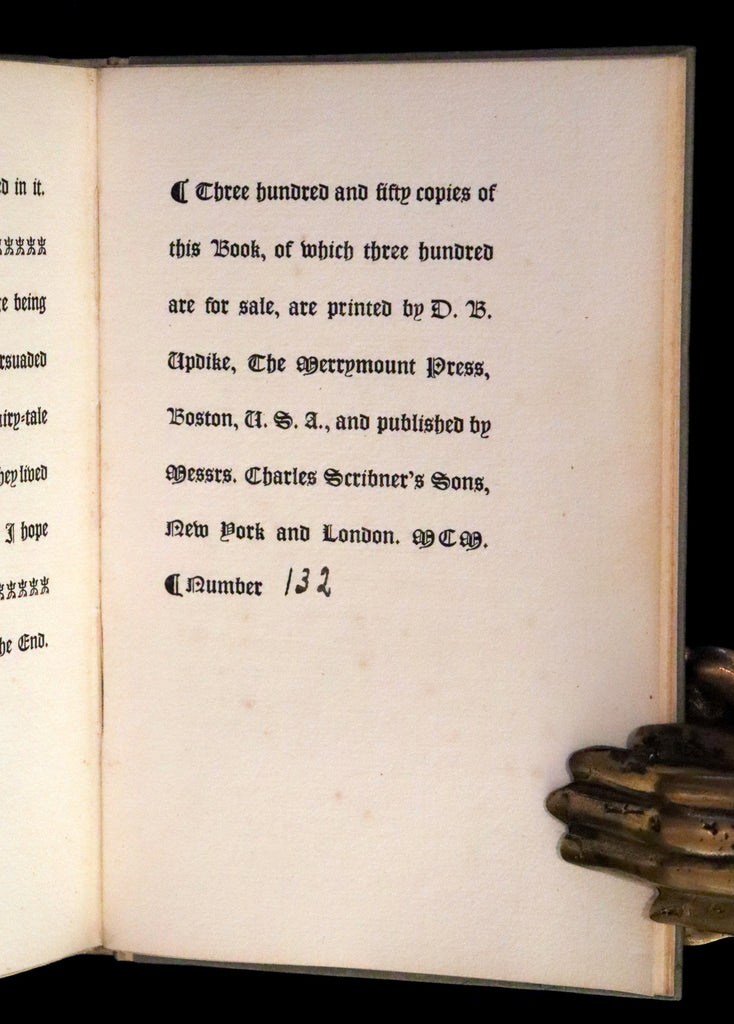 d in it.
e being
rsuaded
airy-tale
hey lived
I hope
he End.
¶ Three hundred and fifty copies of
this Book, of which three hundred
are for sale, are printed by D. B.
Updike, The Merrymount Press,
Boston, U. S. A., and published by
Messrs. Charles Scribner's Sons,
New York and London. MCM.
¶ Number 132